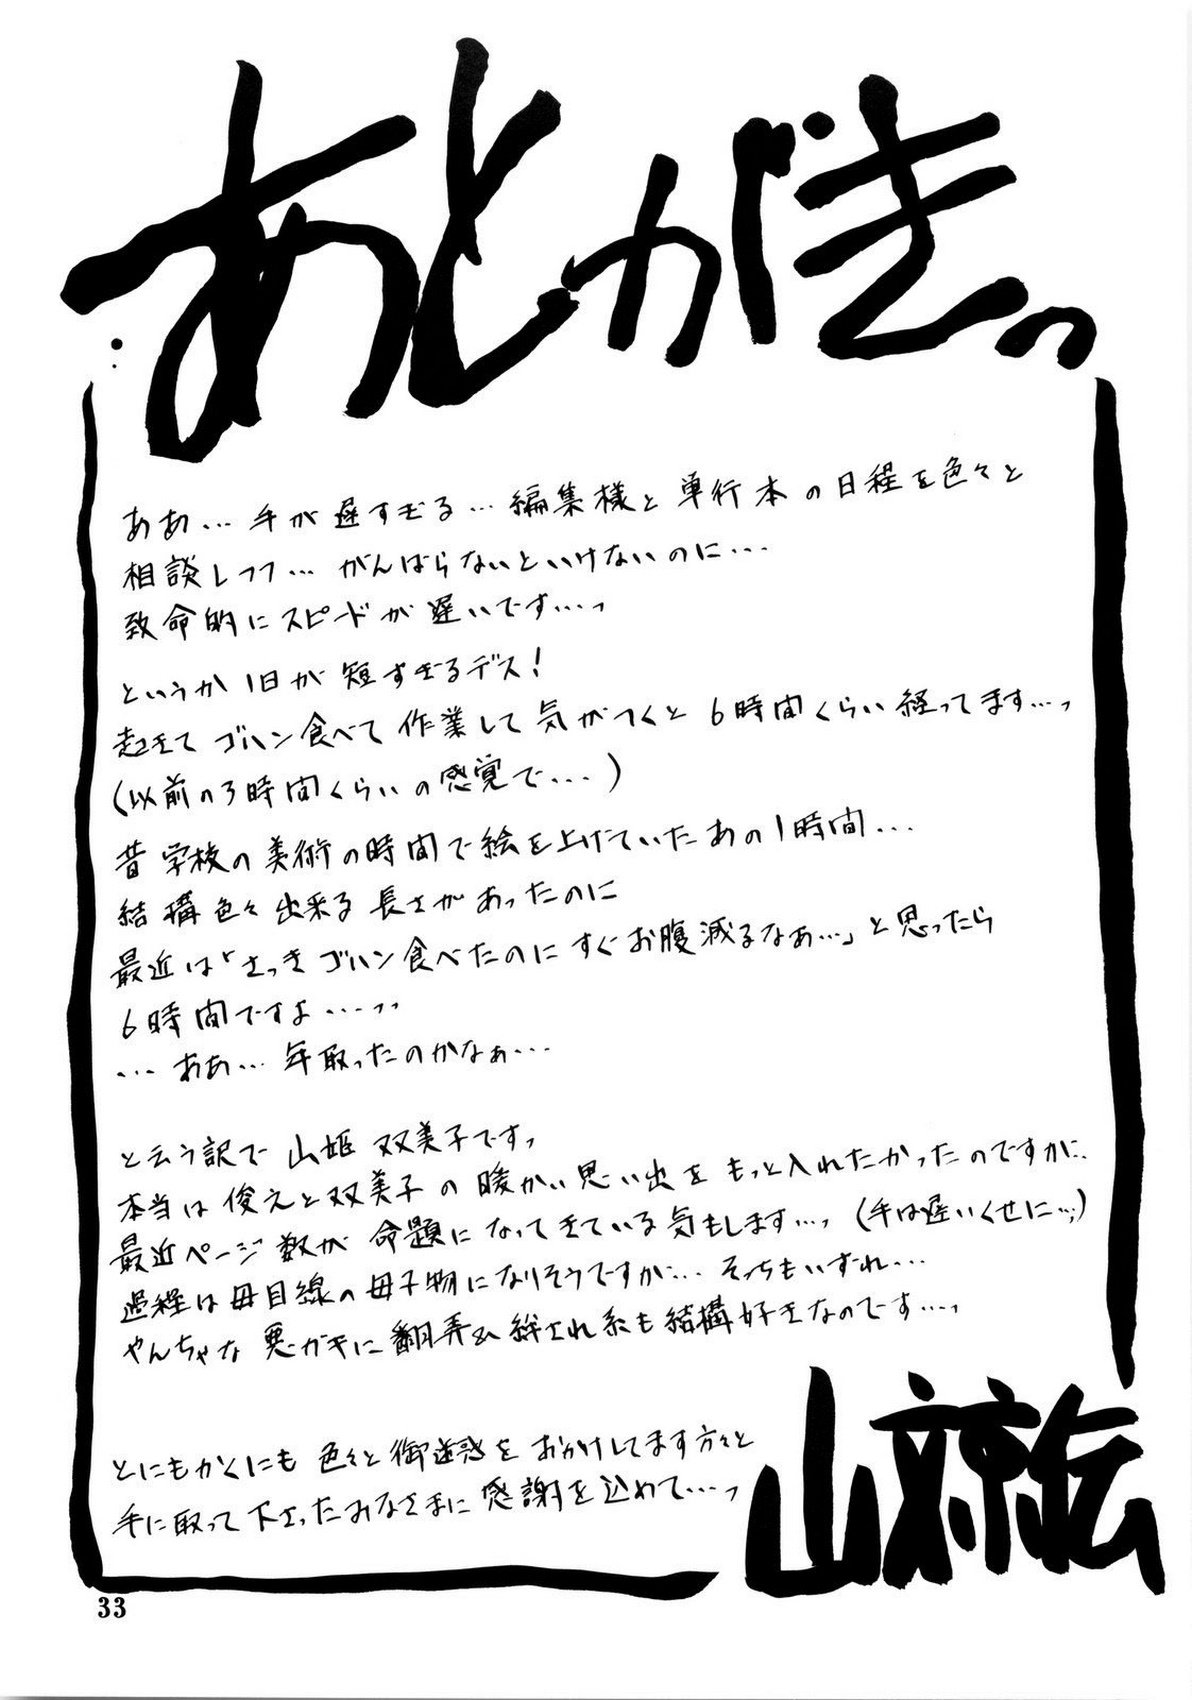 あとがきっ
ああ…手が遅すぎる…編集様と単行本の日程を色々と
相談しつつ…がんばらないといけないのに…
致命的にスピードが遅いです…っ
というか1日が短すぎるデス!
起きてゴハン食べて作業して気がつくと6時間くらい経ってます…っ
(以前の3時間くらいの感覚で…)
昔学校の美術の時間で絵を上げていたあの1時間…
結構色々出来る長さがあったのに
最近は「さっきゴハン食べたのにすぐお腹減るなぁ…」と思ったら
6時間ですよ…っっ
…ああ…年取ったのかなぁ…
と云う訳で山姫双美子ですっ
本当は俊之と双美子の暖かい思い出をもっと入れたかったのですが…
最近ページ数が命題になってきている気もします…っ(手は遅いくせに…;)
過程は母目線の母子物になりそうですが…そっちもいずれ…
やんちゃな悪ガキに翻弄&絆され系も結構好きなのです…っ
とにもかくにも色々と御迷惑をおかけしてます方々と
手に取って下さったみなさまに感謝を込めて…っ
山文京伝
33